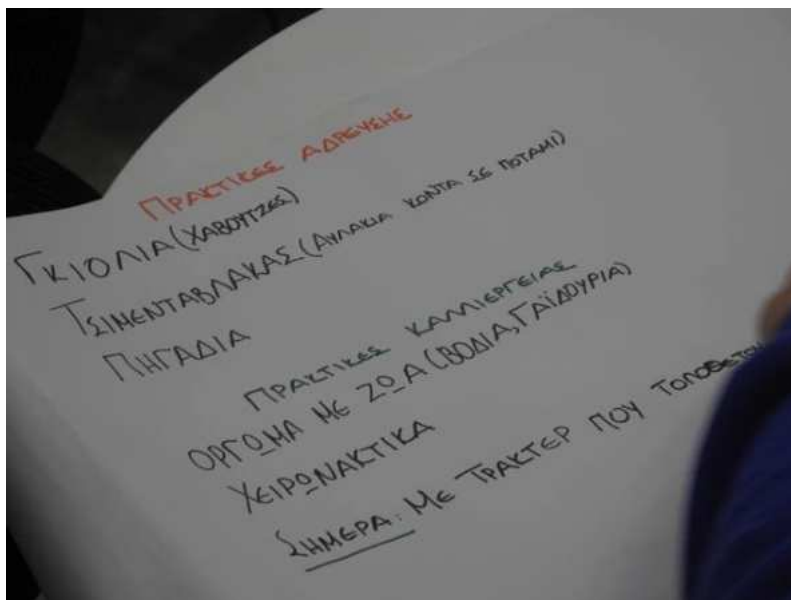 ΠΡΑΚΤΙΚΕΣ ΑΔΡΕΥΣΗΣ
ΓΚΙΟΛΙΑ (ΧΑΒΟΥΤΖΕΣ)
ΤΣΙΜΕΝΤΑΒΛΑΚΑΣ (ΑΥΛΑΚΙΑ ΚΟΝΤΑ ΣΕ ΠΟΤΑΜΙ)
ΠΗΓΑΔΙΑ
ΠΡΑΚΤΙΚΕΣ ΚΑΛΛΙΕΡΓΕΙΑΣ
ΟΡΓΩΜΑ ΜΕ ΖΩΑ (ΒΟΔΙΑ, ΓΑΪΔΟΥΡΙΑ)
ΧΕΙΡΩΝΑΚΤΙΚΑ
ΣΗΜΕΡΑ: ΜΕ ΤΡΑΚΤΕΡ ΠΟΥ